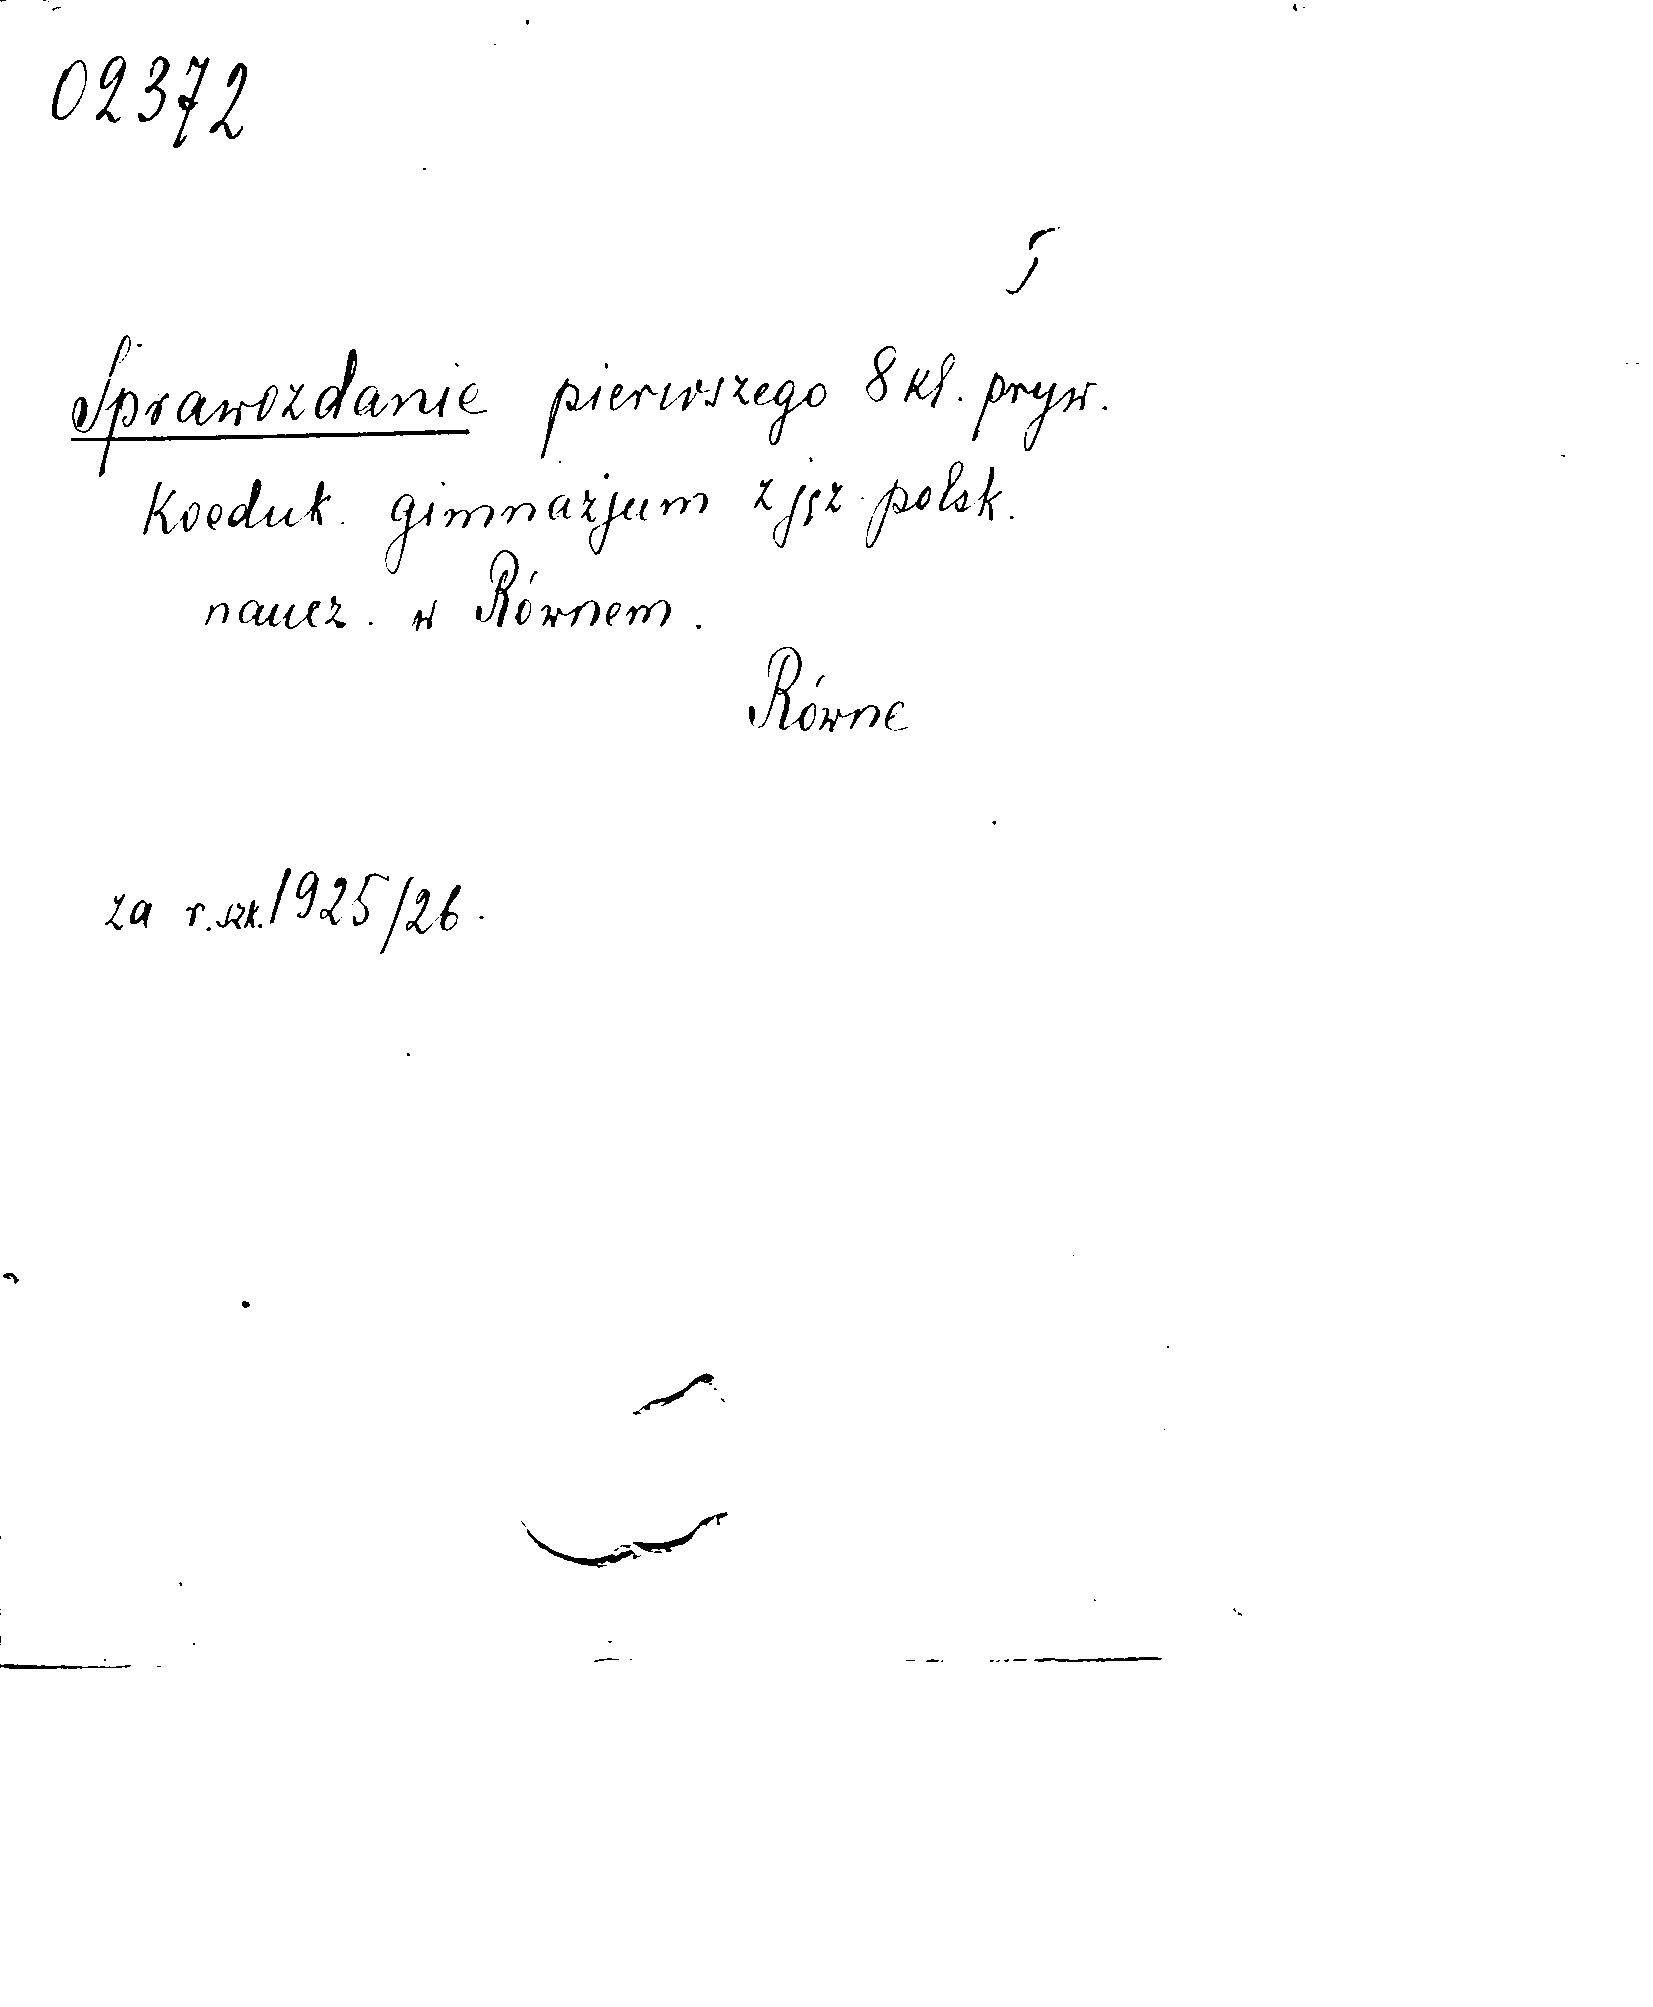 02372
Sprawozdanie pierwszego 8 kl. pryw.
Koeduk. gimnazjum z jęz. polsk.
naucz. w Równem.
Równe
za r. szk. 1925/26.